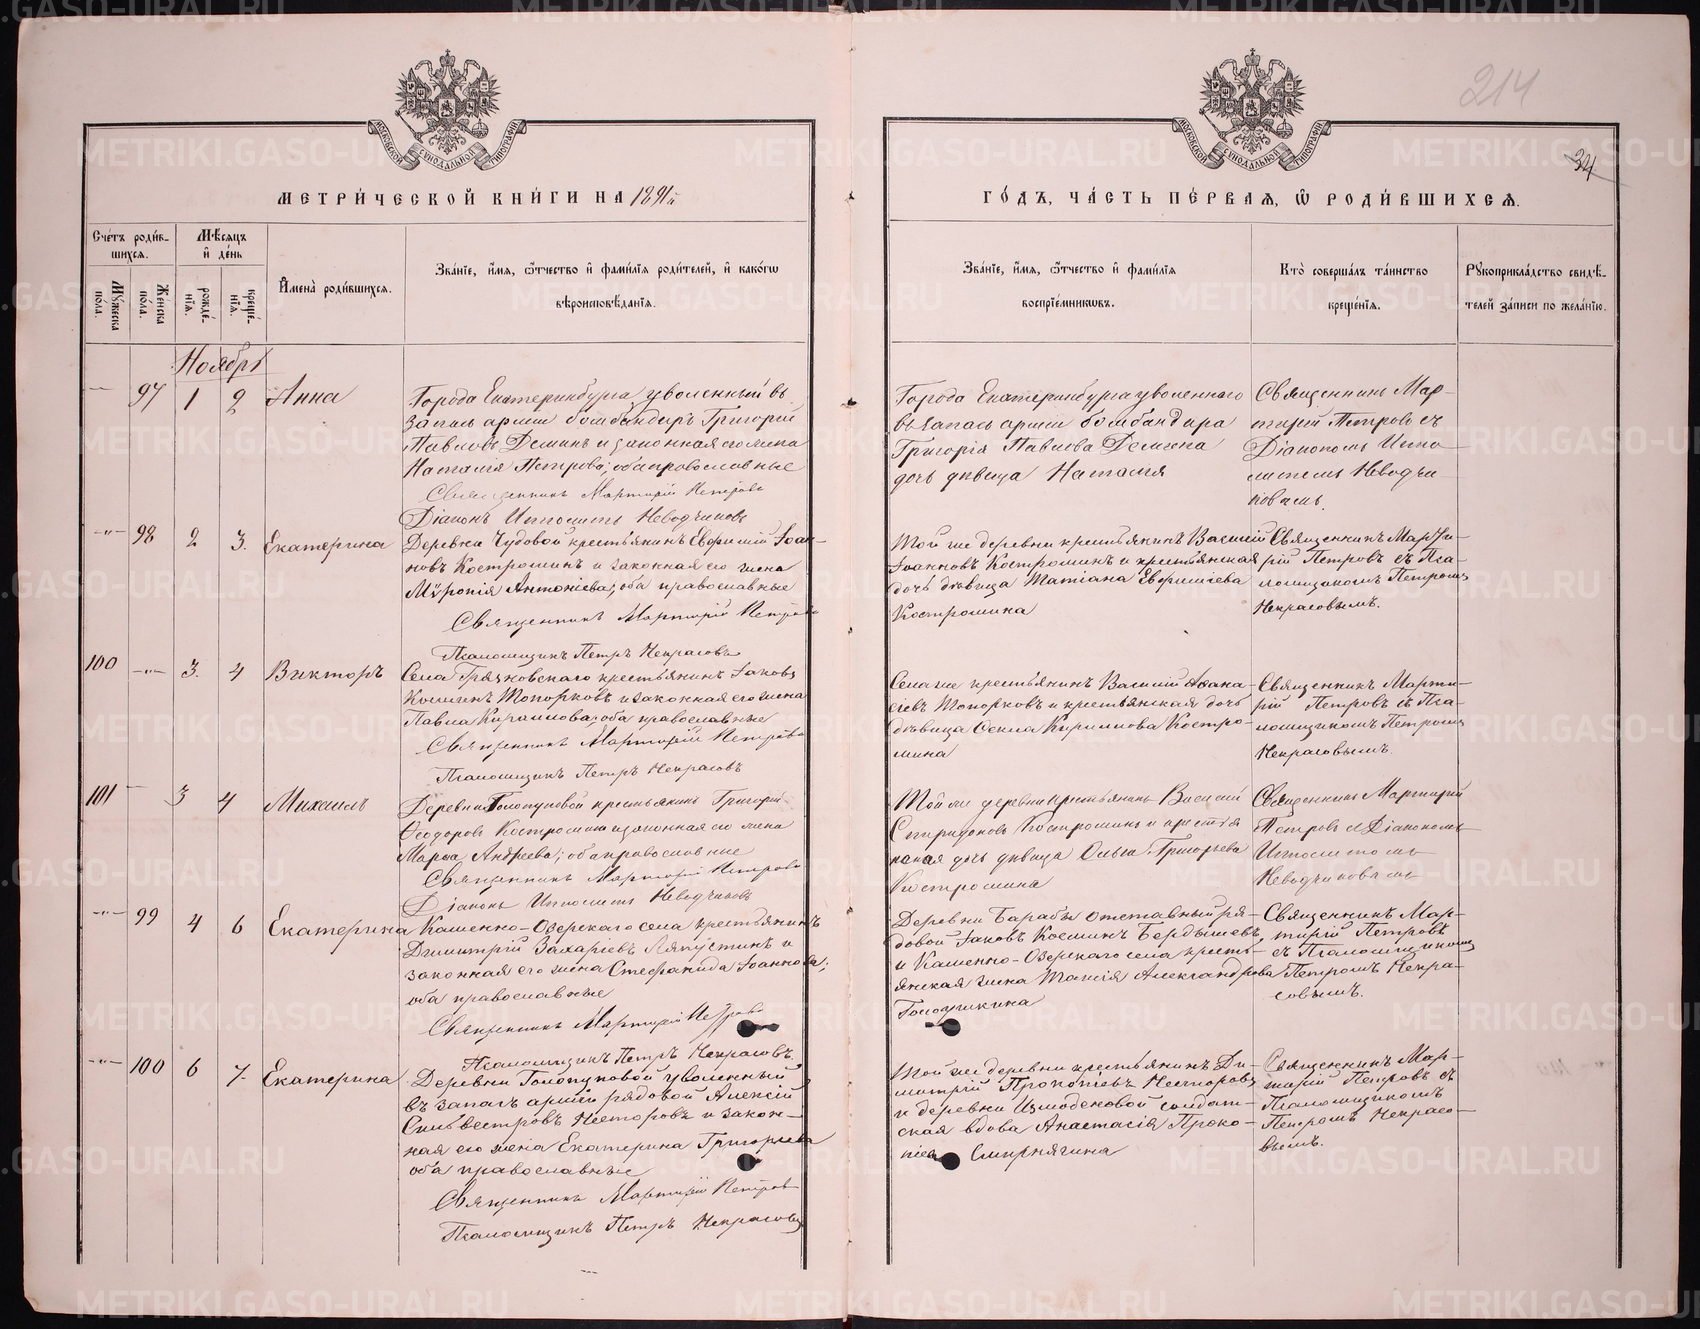 214
34
МОСКОВСКОЙ СѴНОДАЛЬНОЙ ТИПОГРАФІИ
МОСКОВСКОЙ СѴНОДАЛЬНОЙ ТИПОГРАФІИ
МЕТРИ́ЧЕСКОЙ КНИ́ГИ НА 1891й
ГО́ДЪ, ЧА́СТЬ ПЕ́РВАЯ, Ѽ РОДИ́ВШИХСЯ.
Сче́тъ роди́в-
шихся.
Мꙋ́жеска по́ла.
Же́нска по́ла.
Мѣ́сяцъ и де́нь
рожде́нїя.
креще́нїя.
И҆мена̀ роди́вшихся.
Зва́нїе, и҆́мя, ѻ҆́тчество и҆ фами́лїя роди́телей, и҆ како́гѡ
вѣроисповѣ́данїя.
Зва́нїе, и҆́мя, ѻ҆́тчество и҆ фами́лїя
воспрїе́мникѡвъ.
Кто̀ соверша́лъ та́инство
креще́нїя.
Рꙋкоприкла́дство свидѣ́-
телей за́писи по жела́нїю.
Ноябрь
97 1 2 Анна
Города Екатеринбурга уволенный въ
запасъ арміи бомбандиръ Григорій
Павловъ Деминъ и законная его жена
Наталія Петрова; оба православные
Священникъ Мартирій Петровъ
Діаконъ Ипполитъ Неводчиковъ
Города Екатеринбурга уволеннаго
въ запасъ арміи бомбандира
Григорія Павлова Демина
дочь дѣвица Наталія
Священникъ Мар-
тирій Петровъ съ
Діакономъ Иппо-
литомъ Неводчи-
ковымъ.
-"- 98 2 3. Екатерина
Деревни Чудовой крестьянинъ Евфимій Іоан-
новъ Костроминъ и законная его жена
Мѵропія Антоніева; оба православные
Священникъ Мартирій Петровъ
Псаломщикъ Петръ Некрасовъ
Той же деревни крестьянинъ Василій
Іоанновъ Костроминъ и крестьянская
дочь дѣвица Татіана Евфиміева
Костромина
Священникъ Марти-
рій Петровъ съ Пса-
ломщикомъ Петромъ
Некрасовымъ.
100 -"- 3. 4 Викторъ
Села Грязновскаго крестьянинъ Іаковъ
Косминъ Топорковъ и законная его жена
Павла Кириллова; оба православные
Священникъ Мартирій Петровъ
Псаломщикъ Петръ Некрасовъ
Села же крестьянинъ Василій Афана-
сіевъ Топорковъ и крестьянская дочь
дѣвица Фекла Кириллова Костро-
мина
Священникъ Марти-
рій Петровъ съ Пса-
ломщикомъ Петромъ
Некрасовымъ.
101 3 4 Михаилъ
Деревни Голопуповой крестьянинъ Григорій
Ѳеодоровъ Костроминъ и законная его жена
Марѳа Андреева; оба православные
Священникъ Мартирій Петровъ
Діаконъ Ипполитъ Неводчиковъ
Той же деревни крестьянинъ Василій
Спиридоновъ Костроминъ и крестья
нская дочь дѣвица Ольга Григорьева
Костромина
Священникъ Мартирій
Петровъ съ Діакономъ
Ипполитомъ
Неводчиковымъ
-"- 99 4 6 Екатерина
Каменно-Озерскаго села крестьянинъ
Димитрій Захаріевъ Ляпустинъ и
законная его жена Стефанида Іоаннова;
оба православные
Священникъ Мартирій Петровъ
Псаломщикъ Петръ Некрасовъ.
Деревни Барабы отставный ря-
довой Іаковъ Косминъ Бердышевъ,
и Каменно-Озерскаго села кресть-
янская жена Таисія Александрова
Голошкина
Священникъ Мар-
тирій Петровъ
съ Псаломщикомъ
Петромъ Некра-
совымъ.
-"- 100 6 7. Екатерина
Деревни Голопуповой уволенный
въ запасъ арміи рядовой Алексій
Сильвестровъ Несторовъ и закон-
ная его жена Екатерина Григорьева
оба православные
Священникъ Мартирій Петровъ
Псаломщикъ Петръ Некрасовъ
Той же деревни крестьянинъ Ди-
митрій Прокопіевъ Несторовъ
и деревни Измоденовой солдат-
ская вдова Анастасія Проко-
піева Смирнягина
Священникъ Мар-
тирій Петровъ съ
Псаломщикомъ
Петромъ Некрасо-
вымъ.
METRIKI.GASO-URAL.RU